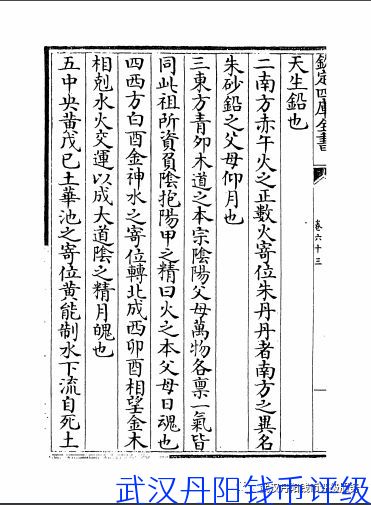 欽定四庫全書
卷六十三
天生鉛也
二南方赤午火之正數火寄位朱丹丹者南方之異名
朱砂鉛之父母仰月也
三東方青夘木道之本宗陰陽父母萬物各禀一氣皆
同此祖所資負陰抱陽甲之精曰火之本父母日魂也
四西方白酉金神水之寄位轉北成西卯酉相望金木
相剋水火交運以成大道陰之精月魄也
五中央黃戊己土華池之寄位黃能制水下流自死土
武汉丹阳钱币评级